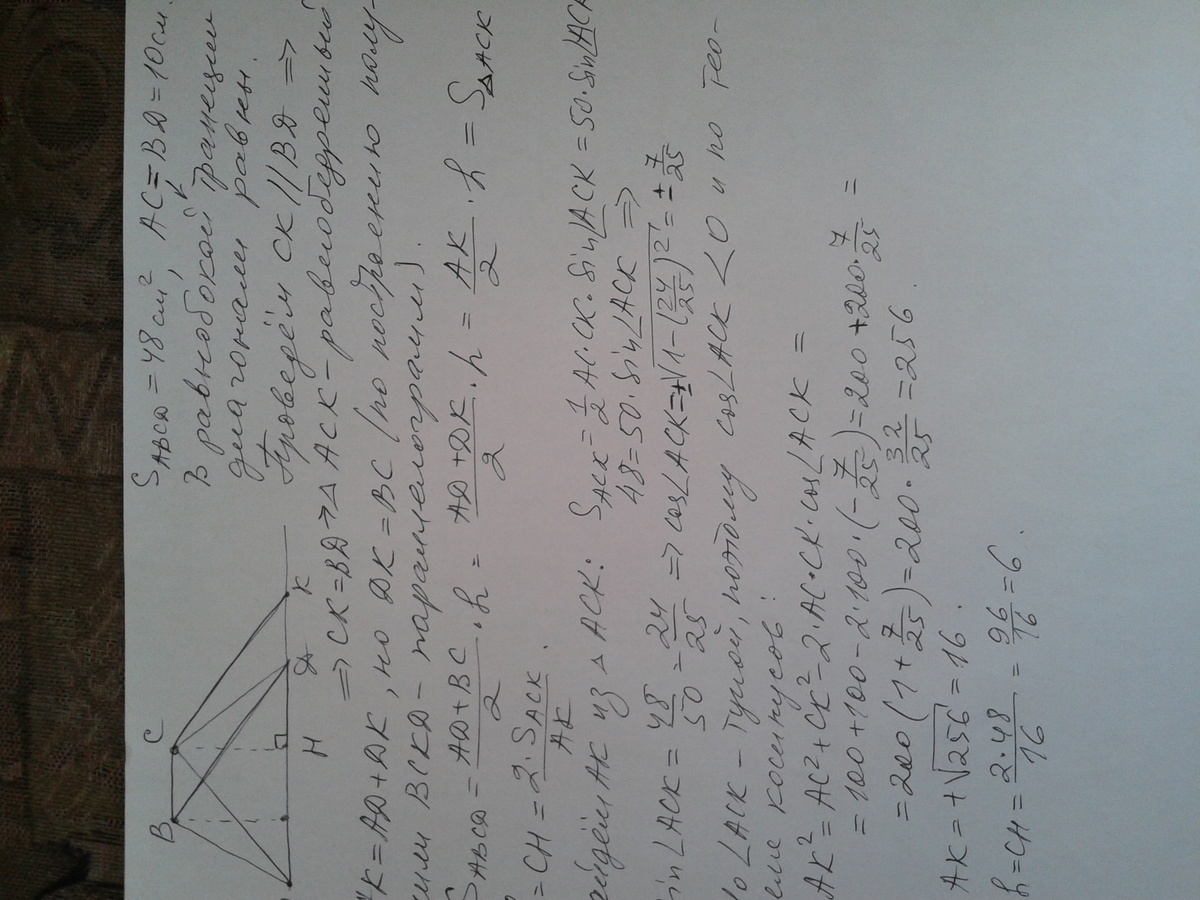 S ABCD = 48 см², AC = BD = 10 см.
В равнобокой трапеции
диагонали равны.
Проведём CK // BD =>
=> CK = BD => △ ACK – равнобедренный
K = AD + DK, но DK = BC (по построению полу-
чили BCKD – параллелограмм).
S ABCD = (AD + BC)/2 · h = (AD + DK)/2 · h = AK/2 · h = S △ACK
= CH = 2·S ACK / AK
айдём AK из △ ACK: S ACK = 1/2 AC·CK·sin∠ACK = 50·sin∠ACK
48 = 50·sin∠ACK =>
sin∠ACK = 48/50 = 24/25 => cos∠ACK = ±√(1 – (24/25)²) = ± 7/25
но ∠ACK – тупой, потому cos∠ACK < 0 и по тео-
реме косинусов:
AK² = AC² + CK² – 2·AC·CK·cos∠ACK =
= 100 + 100 – 2·100·(–7/25) = 200 + 200·7/25 =
= 200(1 + 7/25) = 200·32/25 = 256.
AK = +√256 = 16.
h = CH = 2·48/16 = 96/16 = 6.
B
C
H
D
K